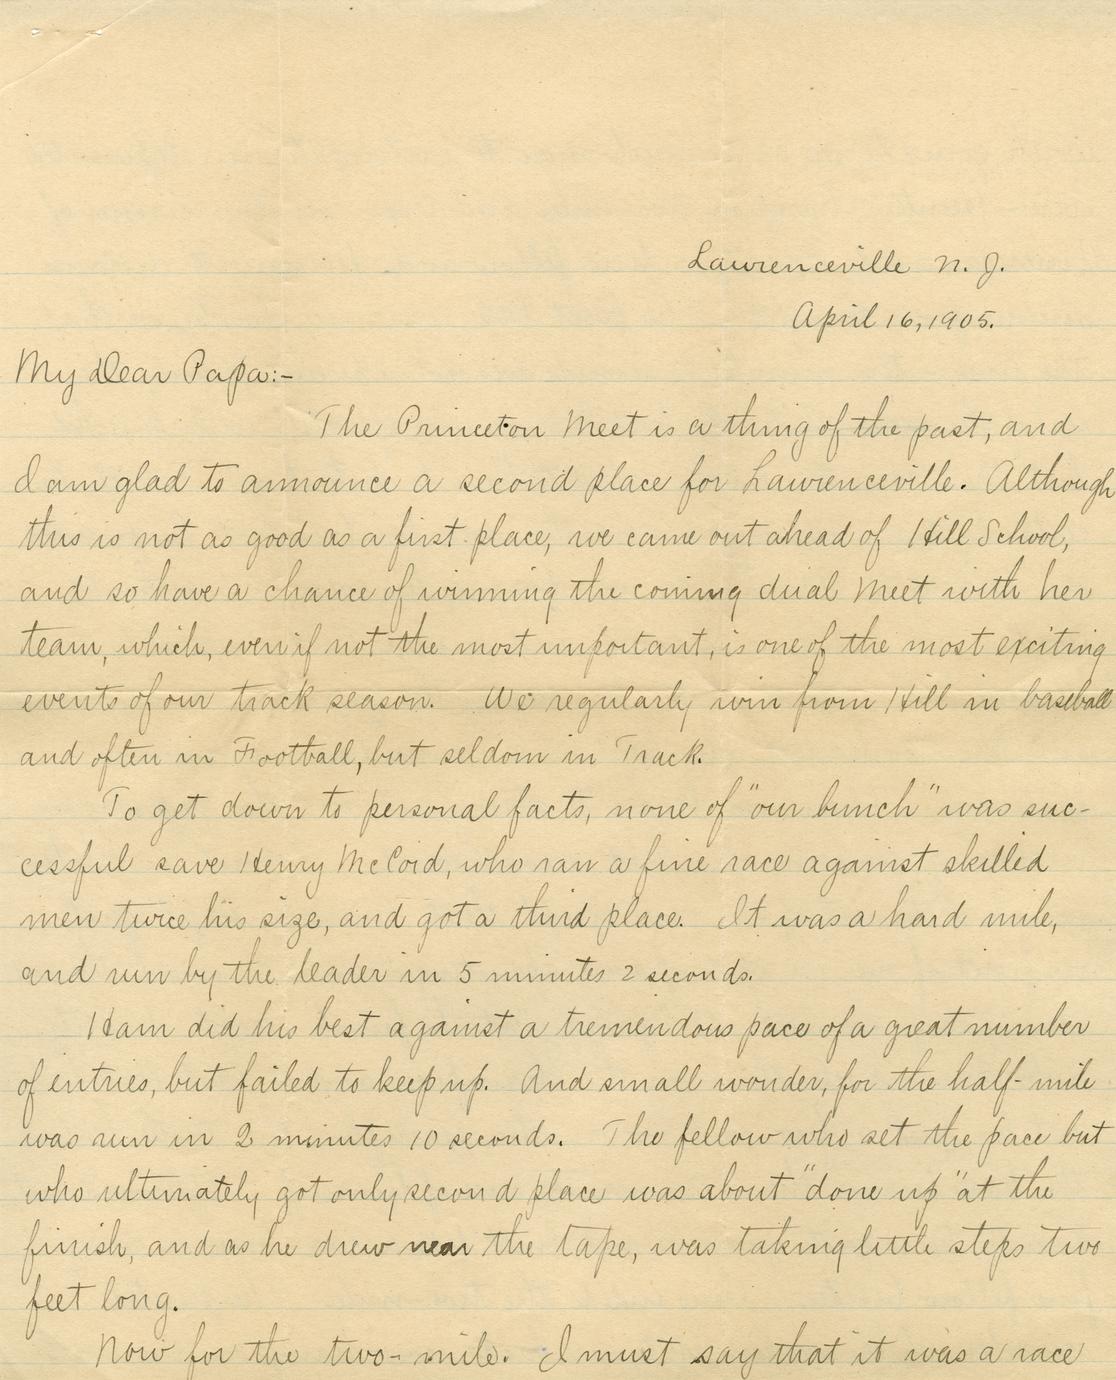 Lawrenceville N. J.
April 16, 1905.
My Dear Papa:-
The Princeton Meet is a thing of the past, and
I am glad to announce a second place for Lawrenceville. Although
this is not as good as a first place, we came out ahead of Hill School,
and so have a chance of winning the coming dual Meet with her
team, which, even if not the most important, is one of the most exciting
events of our track season. We regularly win from Hill in baseball
and often in Football, but seldom in Track.
To get down to personal facts, none of "our bunch" was suc-
cessful save Henry McCoid, who ran a fine race against skilled
men twice his size, and got a third place. It was a hard mile,
and run by the leader in 5 minutes 2 seconds.
Ham did his best against a tremendous pace of a great number
of entries, but failed to keep up. And small wonder, for the half-mile
was run in 2 minutes 10 seconds. The fellow who set the pace but
who ultimately got only second place was about "done up" at the
finish, and as he drew near the tape, was taking little steps two
feet long.
Now for the two-mile. I must say that it was a race